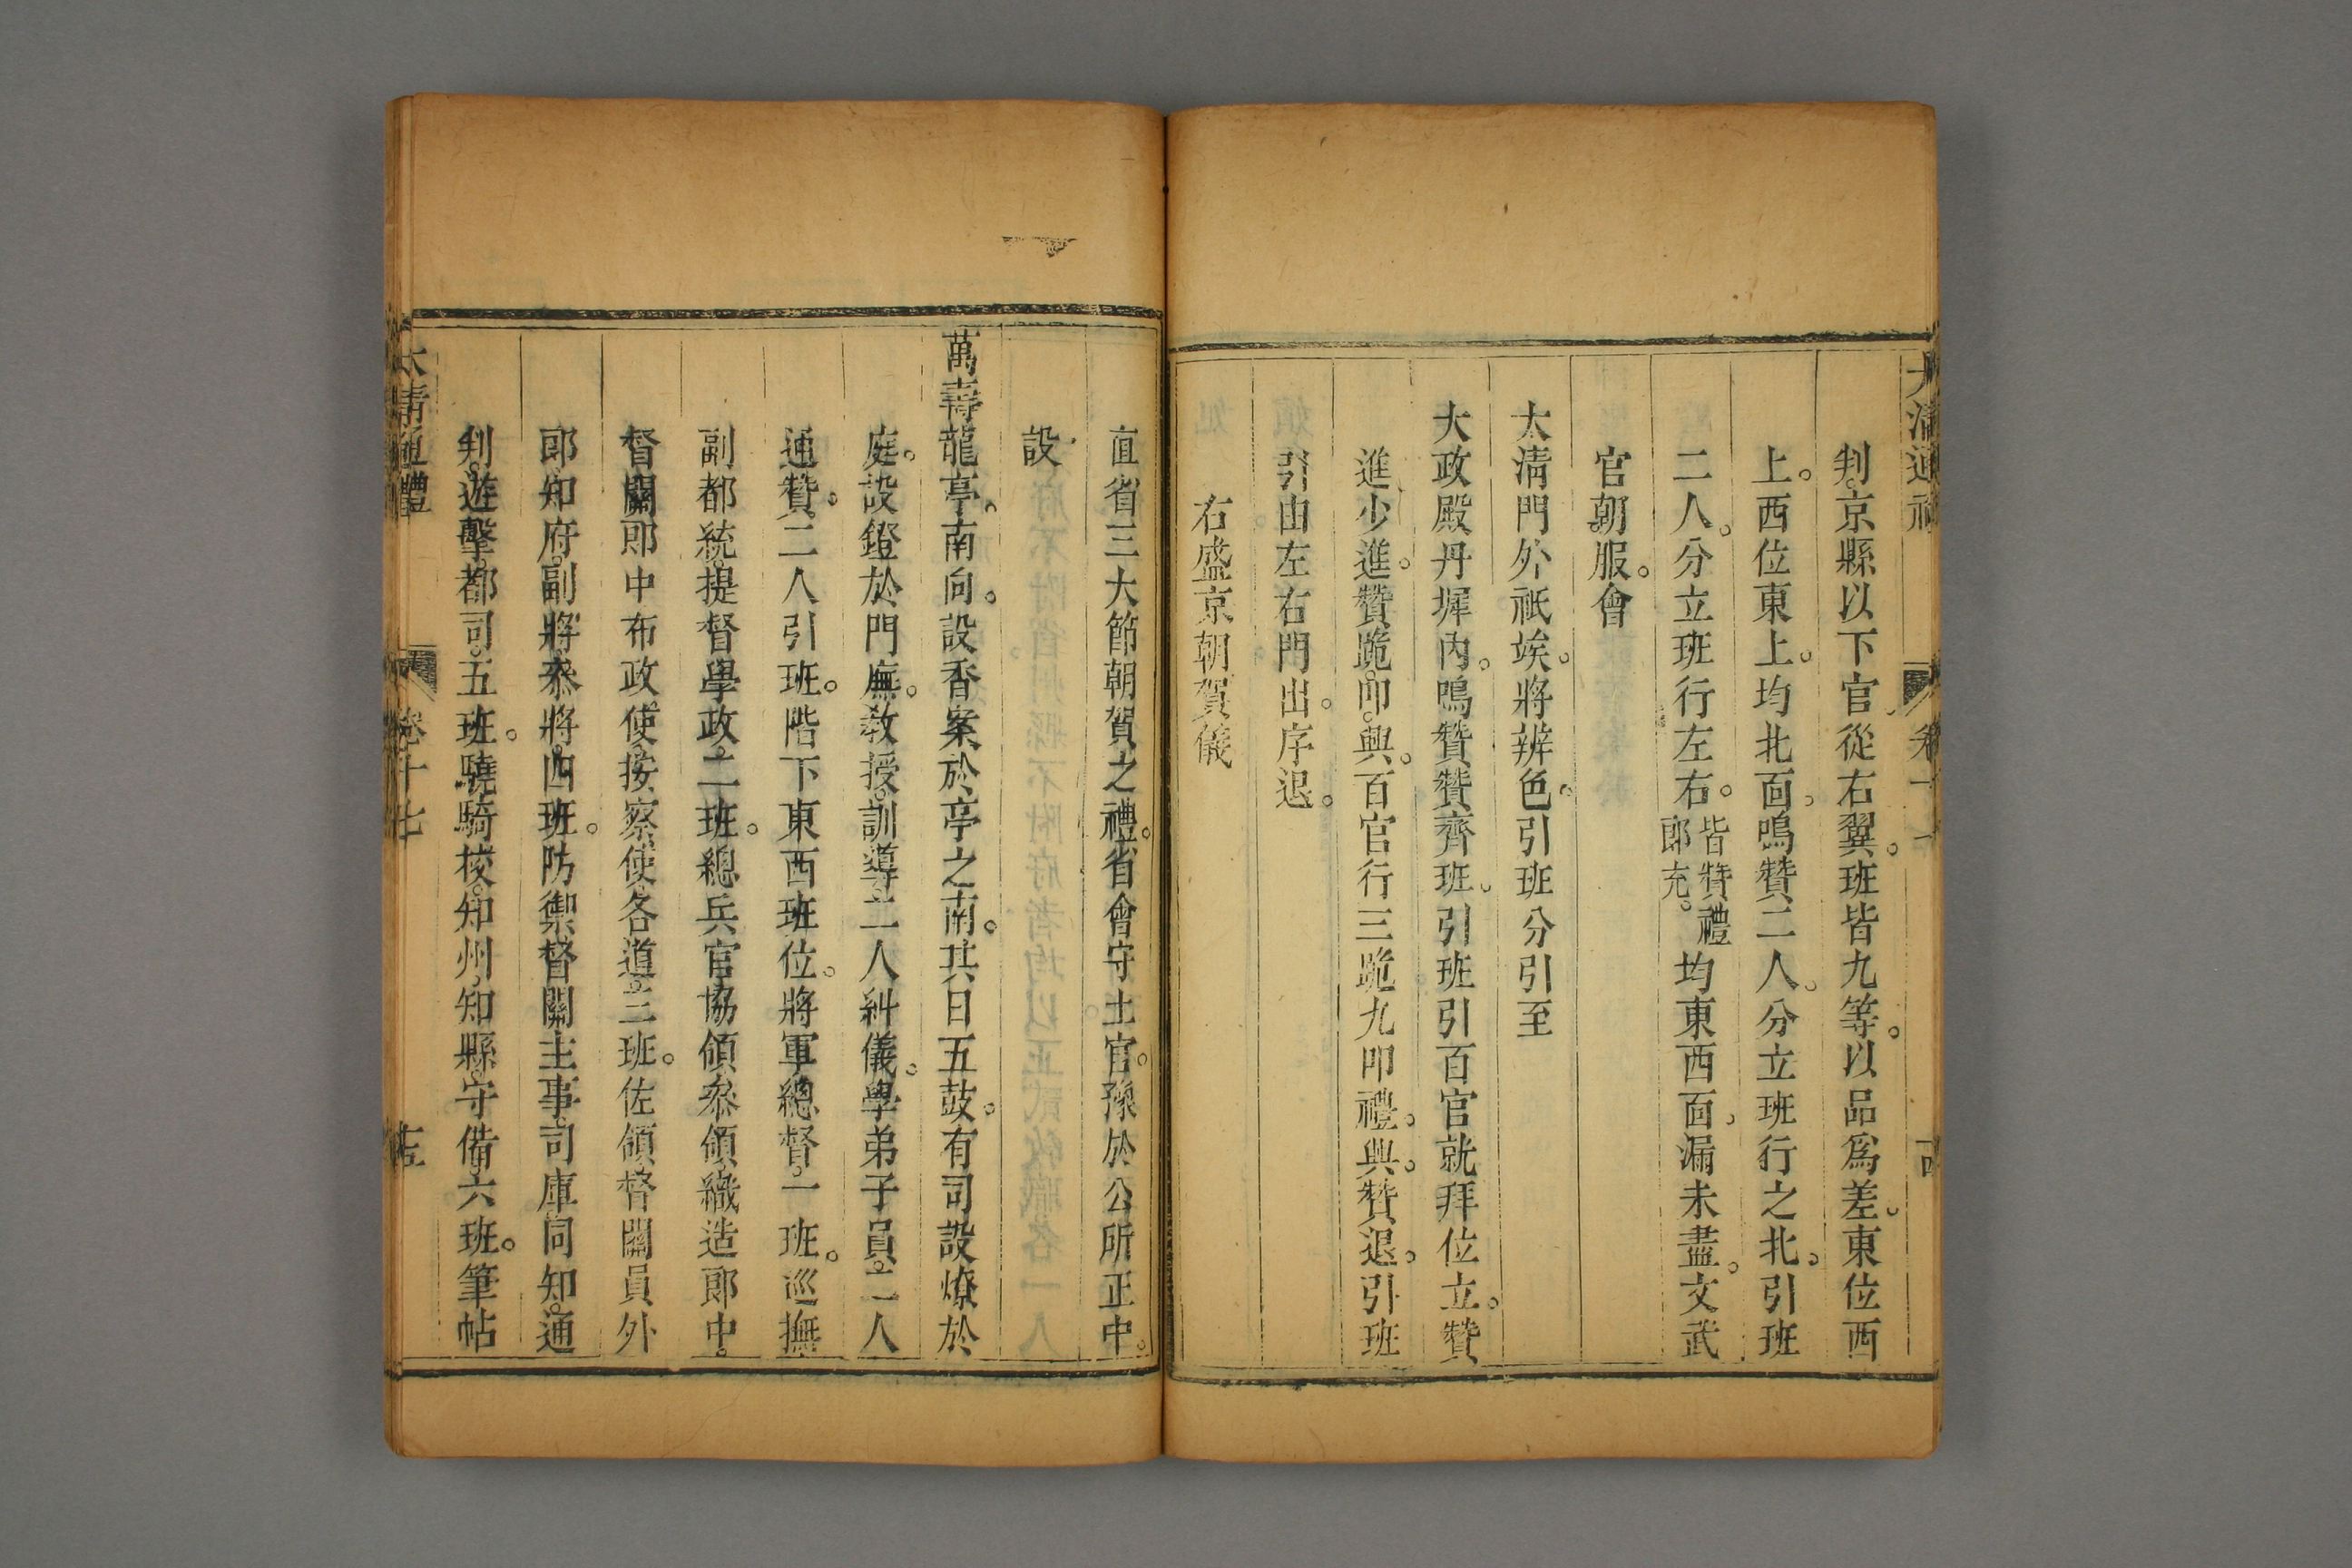 判。京縣以下官從右翼。班皆九等。以品為差。東位西
上。西位東上。均北面。鳴贊二人。分立班行之北。引班
二人。分立班行左右。皆贊禮郎充。均東西面。漏未盡。文武
官朝服。會
大清門外祇竢。將辨色。引班分引至
大政殿丹墀內。鳴贊贊齊班。引班引百官就拜位立。贊
進。少進。贊跪。叩。興。百官行三跪九叩禮。興。贊退。引班
引由左右門出。序退。
右盛京朝賀儀
直省三大節朝賀之禮。省會守土官。豫於公所正中。
設
萬壽龍亭。南向。設香案於亭之南。其日五鼓。有司設燎於
庭。設鐙於門廡。敎授。訓導。二人糾儀。學弟子員。二人
通贊。二人引班。階下東西班位。將軍總督。一班。巡撫
副都統。提督學政。二班。總兵官協領叅領織造郎中。
督關郎中布政使按察使各道。三班。佐領督關員外
郎知府。副將叅將。四班。防禦督關主事。司庫同知。通
判。遊擊。都司。五班。驍騎挍。知州。知縣。守備。六班。筆帖
大清通禮
卷十七
十五